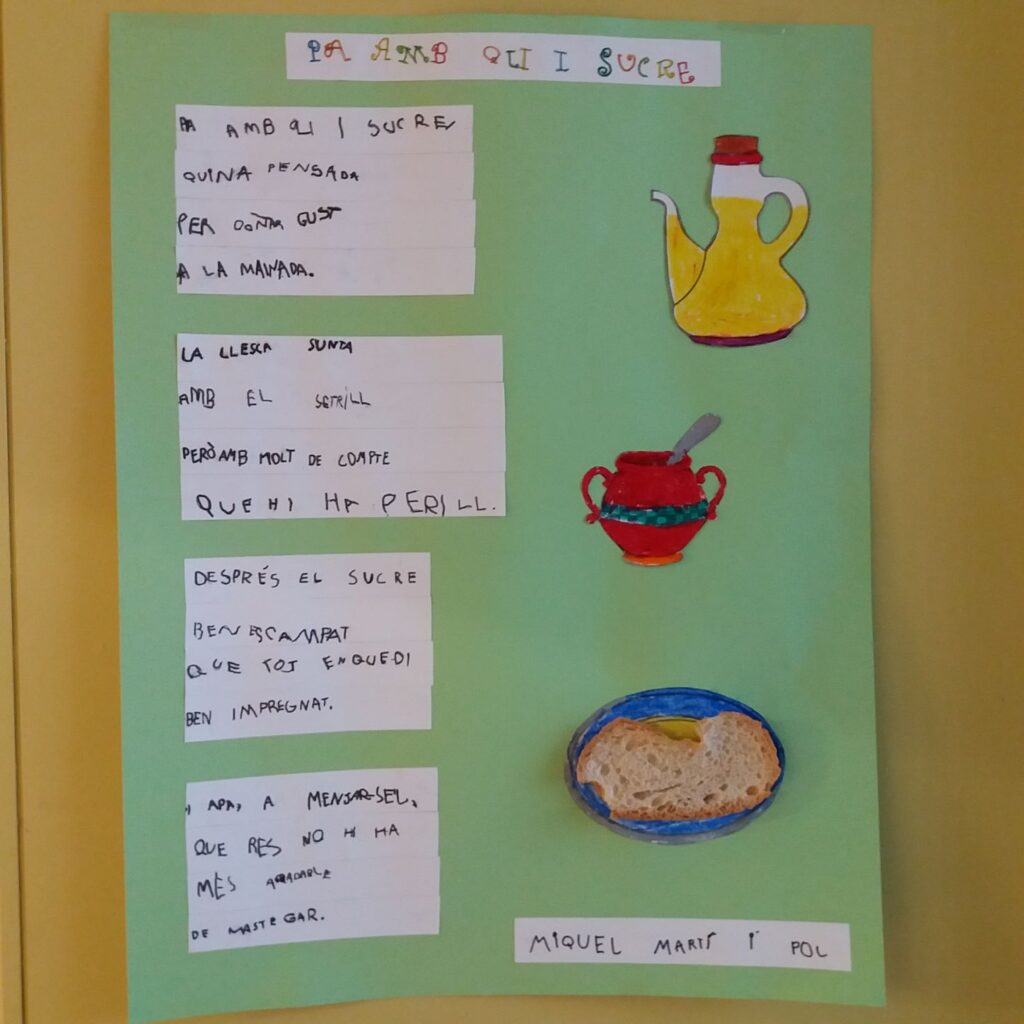 PA AMB OLI I SUCRE
PA AMB OLI I SUCRE
QUINA PENSADA
PER DONAR GUST
A LA MAINADA.
LA LLESCA SUNTA
AMB EL SETRILL
PERÒ AMB MOLT DE COMPTE
QUE HI HA PERILL.
DESPRÉS EL SUCRE
BEN ESCAMPAT
QUE TOT EN QUEDI
BEN IMPREGNAT.
I APA, A MENJAR-SEL,
QUE RES NO HI HA
MÉS AGRADABLE
DE MASTEGAR.
MIQUEL MARTÍ I POL